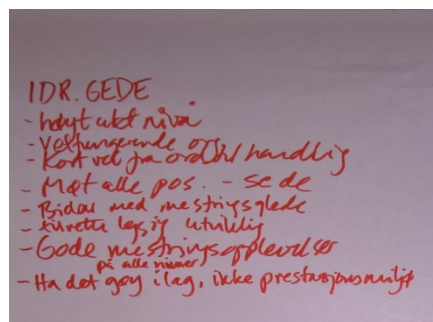 IDR. GEDE
- høyt akt nivå
- Velfungerende org
- Kort vei fra ord til handling
- Møt alle pos. - se de
- Bidra med mestringsglede
- legg utvikling
- Gode mestringsopplevelser
på alle nivåer
- Ha det gøy ilag, ikke prestasjonsmiljø